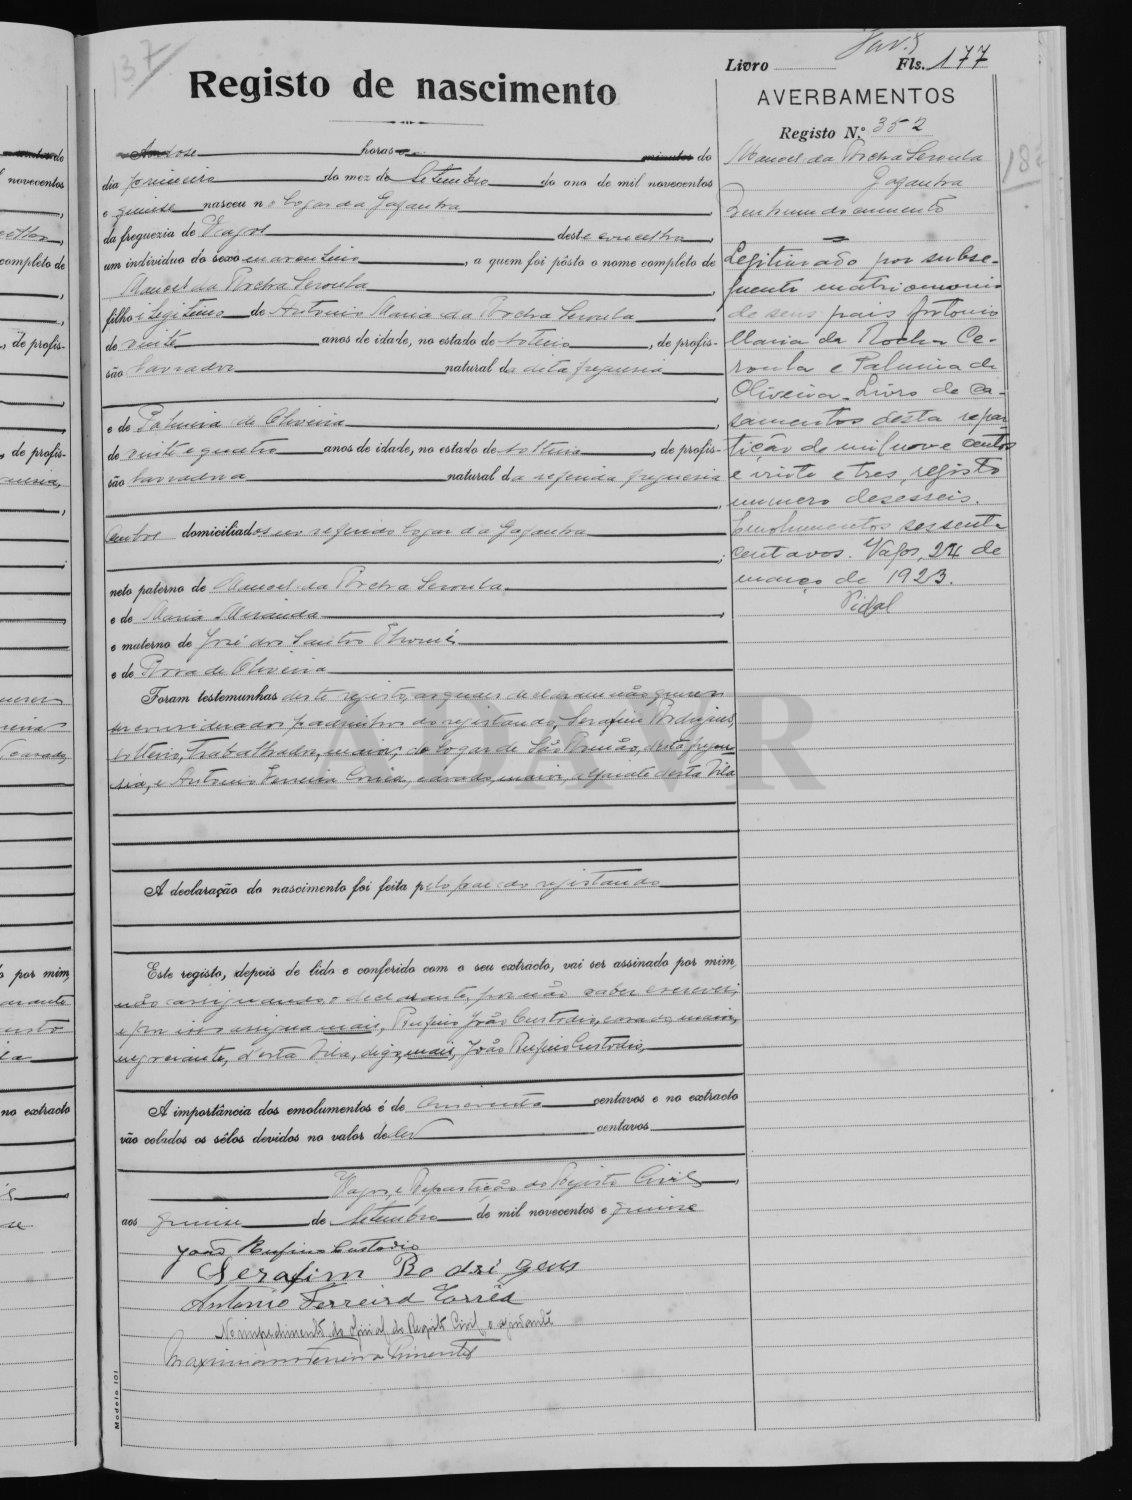 137
Jav. 5
Livro Fls. 177
Registo de nascimento
AVERBAMENTOS
Registo N.º 352
Ás dose horas e minutos do
dia primeiro do mez de Setembro do ano de mil novecentos
e quinse nasceu no logar da Gafanha,
da freguezia de Vagos deste concelho,
um individuo do sexo masculino, a quem foi pôsto o nome completo de
Manoel da Rocha Seroula,
filho ilegitimo de Antonio Maria da Rocha Seroula,
de vinte anos de idade, no estado de solteiro, de profis-
são lavrador natural da dita freguesia
e de Palmira de Oliveira,
de vinte e quatro anos de idade, no estado de solteira, de profis-
são lavradora natural da referida freguesia
ambos domiciliados no referido logar da Gafanha;
neto paterno de Manoel da Rocha Seroula,
e de Maria Miranda,
e materno de José dos Santos Thomé
e de Rosa de Oliveira
Foram testemunhas deste registo, as quaes declararam não querer
ser considerados padrinhos do registando, Serafim Rodrigues,
solteiro, trabalhador, maior, do logar de São Romão, desta fregue-
sia, e Antonio Ferreira Corrêa, casado, maior, desta Vila
A declaração do nascimento foi feita pelo pae do registando
Este registo, depois de lido e conferido com o seu extracto, vai ser assinado por mim,
não assignando o declarante, por não saber escrever,
e por isso assigna mais, Rufino João Custodio, casado, maior,
negociante, d'esta Vila, digo, mais, João Rufino Custodio,
A importância dos emolumentos é de cincoenta centavos e no extracto
vão colados os sêlos devidos no valor de centavos
Vagos, e Repartição do Registo Civil,
aos quinse de Setembro de mil novecentos e quinse
João Rufino Custodio
Serafim Rodrigues
Antonio Ferreira Corrêa
No impedimento do oficial do Registo Civil, o ajudante
Maximiano Ferreira Pimentel
Modelo 101
Manoel da Rocha Seroula
Gafanha
Legitimado por subse-
quente matrimonio
de seus pais Antonio
Maria da Rocha Ce-
roula e Palmira de
Oliveira. Livro de ca-
samentos desta repar-
tição de mil nove centos
e vinte e tres, registo
numero desesseis.
Emolumentos sessenta
centavos. Vagos, 24 de
março de 1923.
Vidal
ADAVR